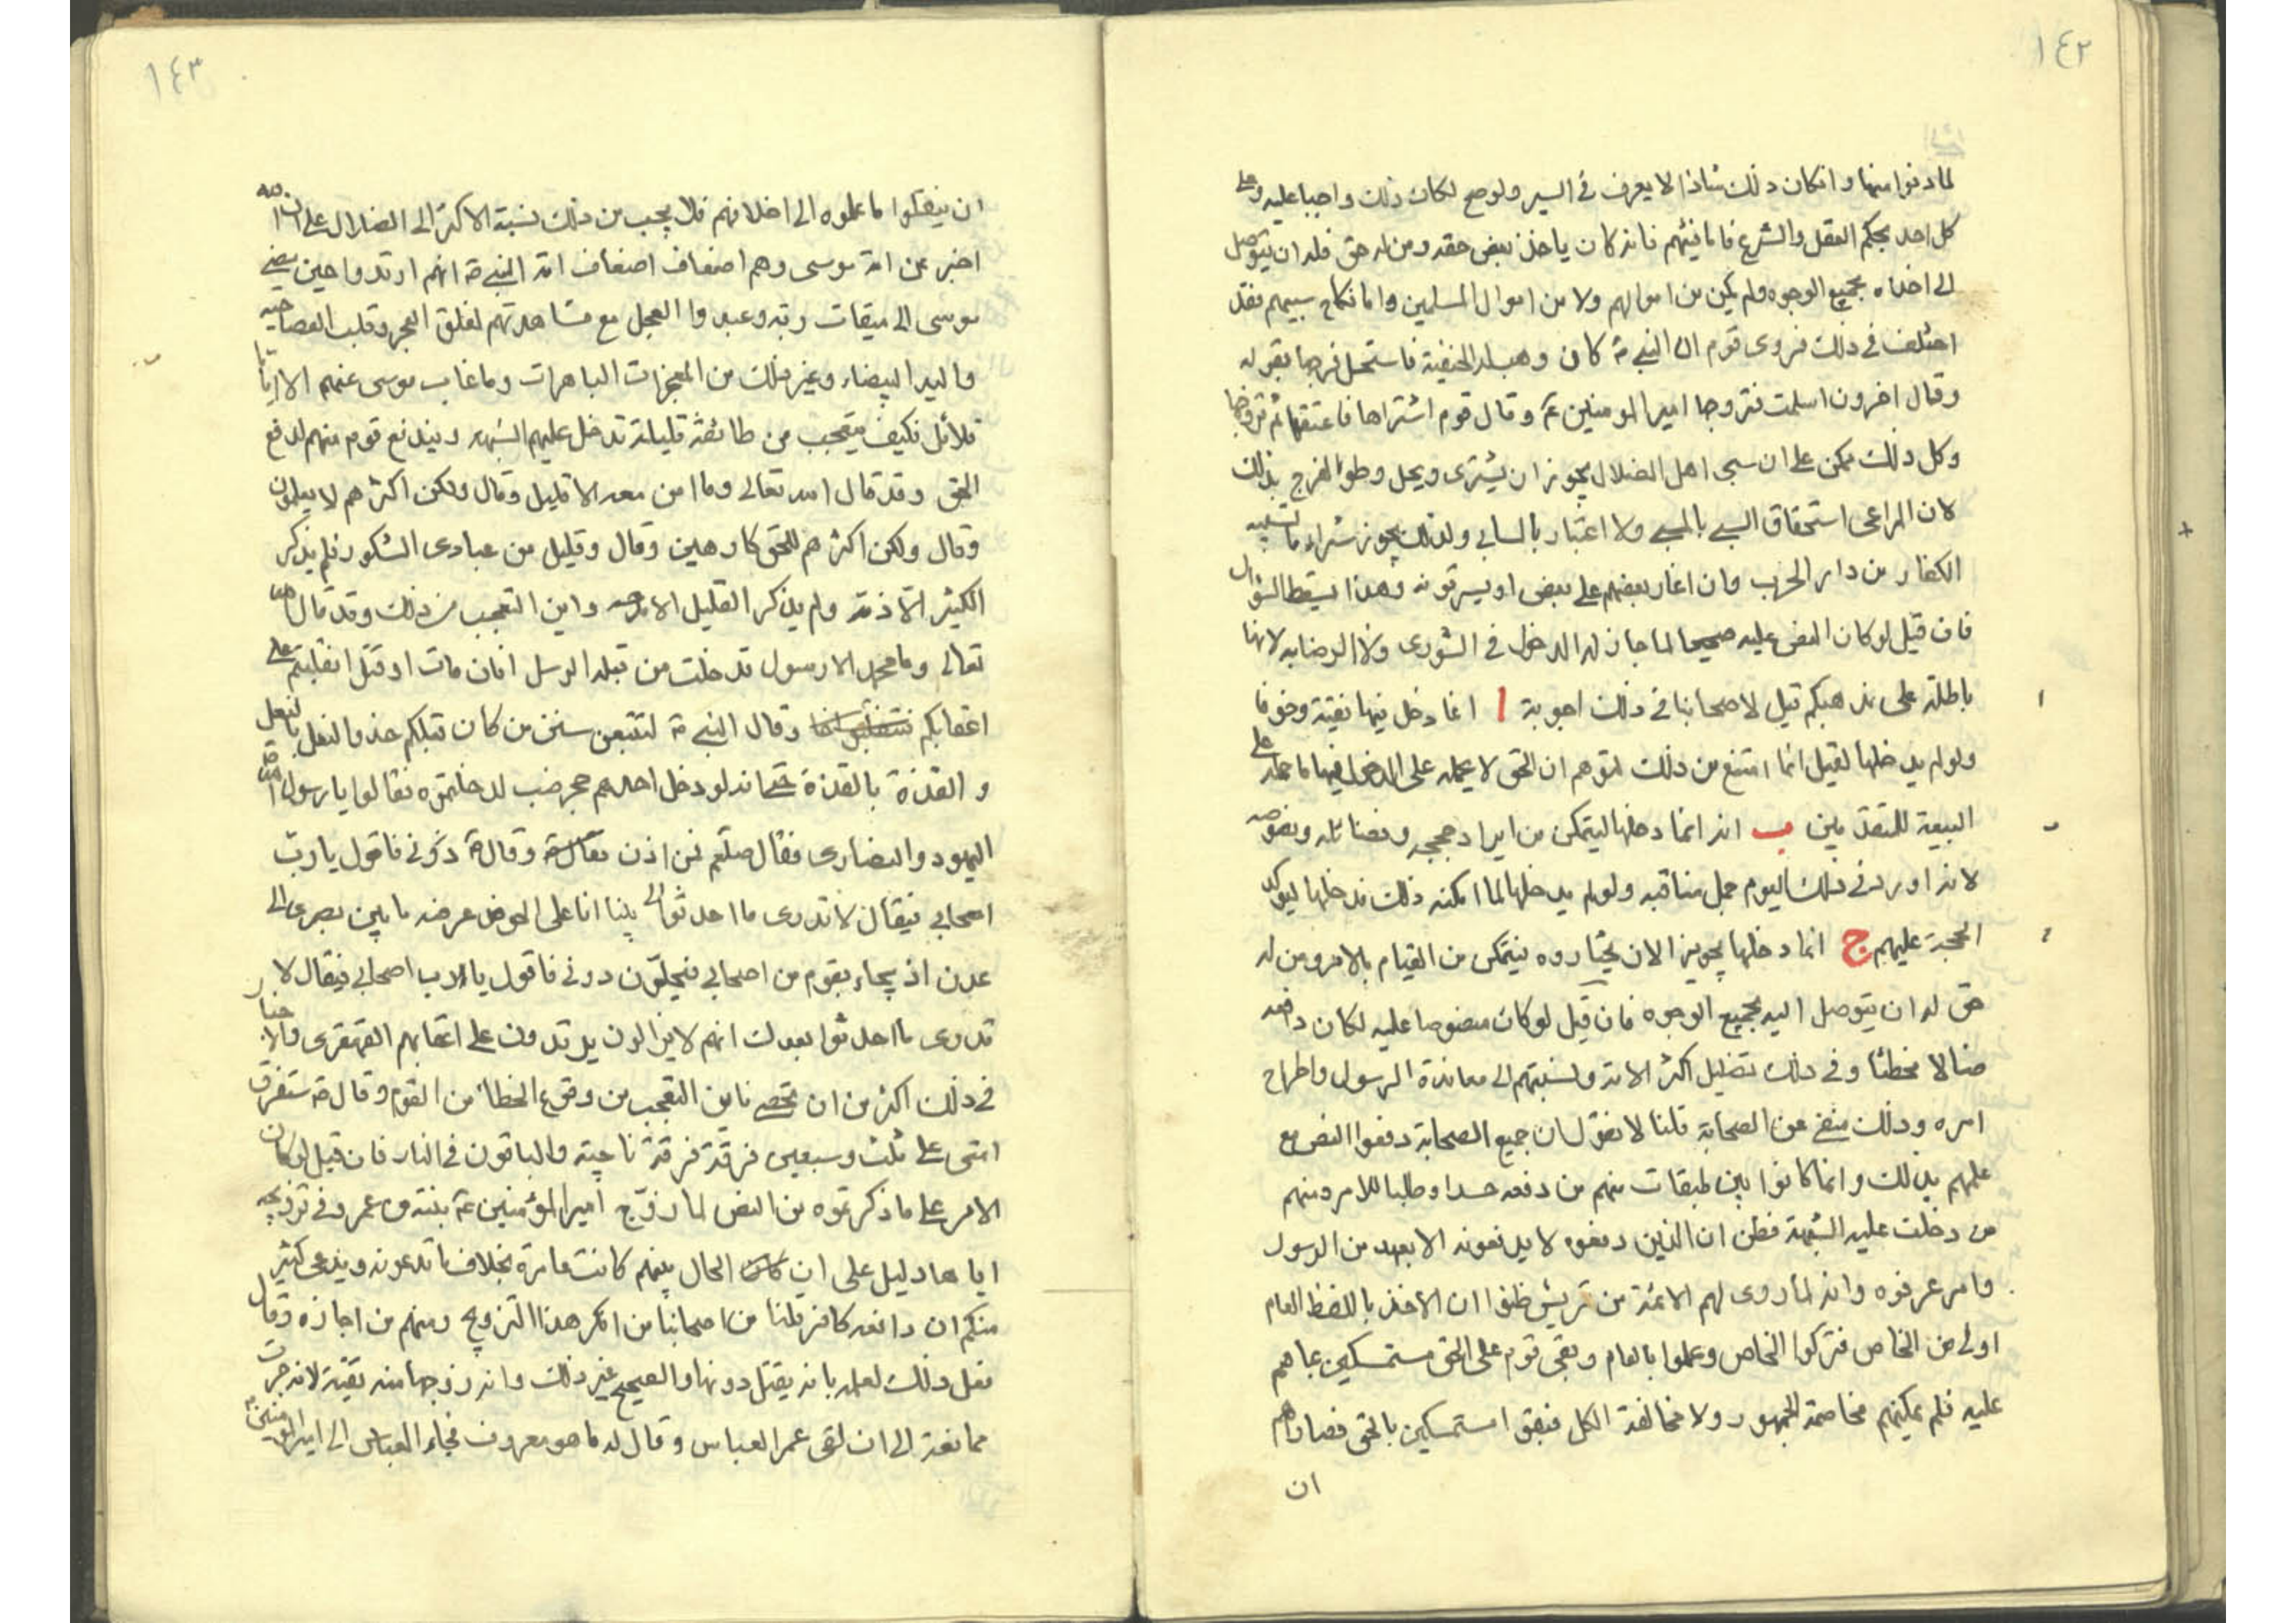 ١٤٢
لما دنوا منها وان كان ذلك شاذا لا يعرف في السير ولو صح لكان ذلك واجبا عليه وعلى
كل احد بحكم العقل والشرع فاما فيئهم فانه كان ياخذ بعض حقه ومن له حق فله ان يتوصل
الى اخذه بجميع الوجوه ولم يكن من اموالهم ولا من اموال المسلمين واما نكاح سبيهم فقد
اختلف في ذلك فروى قوم ان النبي ص كان وهب له الحنفية فاستحل فرجها بقوله
وقال اخرون اسلمت فتزوجها امير المومنين ع وقال قوم اشتراها فاعتقها ثم تزوجها
وكل ذلك ممكن على ان سبى اهل الضلال يجوز ان يشترى ويحل وطؤ الفرج بذلك
لان المراعى استحقاق السبى بالمسبى ولا اعتبار بالسابى ولذلك يجوز شراء ما تسبيه
الكفار من دار الحرب وان اغار بعضهم على بعض او يسرقونه وهذا يسقط السؤال
فان قيل لو كان النص عليه صحيحا لما جاز له الدخول في الشورى ولا الرضا به لانها
باطلة على مذهبكم قيل لاصحابنا في ذلك اجوبة ا انما دخل فيها تقية وخوفا
ولو لم يدخلها لقيل انما امتنع من ذلك لتوهم ان الحق لا عمله على الدخول فيها ما حمله على
البيعة للمتقدمين ب انه انما دخلها ليتمكن من ايراد حججه وفضائله ونصوصه
لانه اورد في ذلك اليوم جمل مناقبه ولو لم يدخلها لما امكنه ذلك فدخلها ليوكد
الحجة عليهم ج انما دخلها تجويزا لان يختاروه فيتمكن من القيام بالامر ومن له
حق له ان يتوصل اليه بجميع الوجوه فان قيل لو كان منصوصا عليه لكان دافعه
ضالا مخطئا وفي ذلك تضليل اكثر الامة ونسبتهم الى معاندة الرسول واطراح
امره وذلك منفى عن الصحابة قلنا لا نقول ان جميع الصحابة دفعوا النص مع
علمهم بذلك وانما كانوا بين طبقات منهم من دفعه حسدا وطلبا للامر ومنهم
من دخلت عليه الشبهة فظن ان الذين دفعوه لا يدفعونه الا بعهد من الرسول
وامر عرفوه وانه لما روى لهم الائمة من قريش ظنوا ان الاخذ باللفظ العام
اولى من الخاص فتركوا الخاص وعملوا بالعام وبقى قوم على الحق مستمسكين بما هم
عليه فلم يمكنهم مخاصمة الجمهور ولا مخالفة الكل فبقوا مستمسكين بالحق فصاراهم
ان
١٤٣
ان ينقلوا ما علموه الى اخلافهم فلا يجب من ذلك نسبة الاكثر الى الضلال على ان الله
اخبر عن امة موسى وهم اضعاف اضعاف امة النبي ص انهم ارتدوا حين مضى
موسى الى ميقات ربه وعبدوا العجل مع مشاهدتهم لفلق البحر وقلب العصا حية
واليد البيضاء وغير ذلك من المعجزات الباهرات وما غاب موسى عنهم الا اياما
قلائل فكيف يتعجب من طائفة قليلة تدخل عليهم الشبهه ويندفع قوم منهم لدفع
الحق وقد قال الله تعالى وما امن معه الا قليل وقال ولكن اكثرهم لا يعلمون
وقال ولكن اكثرهم للحق كارهين وقال وقليل من عبادى الشكور فلم يذكر
الكثير الا ذمه ولم يذكر القليل الا مدحه واين التعجب من ذلك وقد قال الله
تعالى وما محمد الا رسول قد خلت من قبله الرسل افان مات او قتل انقلبتم على
اعقابكم وقال النبي ص لتتبعن سنن من كان قبلكم حذو النعل بالنعل
و القذة بالقذة حتى انه لو دخل احدهم جحر ضب لدخلتموه فقالوا يا رسول الله
اليهود والنصارى فقال صلعم فمن اذن وقال ص دونى فاقول يا رب
اصحابى فيقال لا تدرى ما احدثوا الى بينا انا على الحوض عرضه ما بين بصرى الى
عدن اذ يجاء بقوم من اصحابى فيحلؤن دونى فاقول يا رب اصحابى فيقال لا
تدرى ما احدثوا بعدك انهم لا يزالون يرتدون على اعقابهم القهقرى والاخبار
في ذلك اكثر من ان تحصى فاين التعجب من وقوع الخطأ من القوم وقال ص ستفرق
امتى على ثلث وسبعين فرقة فرقة ناجية والباقون في النار فان قيل لو كان
الامر على ما ذكرتموه من النص لما زوج امير المؤمنين ع بنته من عمر وفي تزويجه
اياها دليل على ان الحال بينهم كانت عامرة بخلاف ما تدعونه ويدعى كثير
منكم ان دافعه كافر قلنا من اصحابنا من انكر هذا التزويج ومنهم من اجازه وقال
فعل ذلك لعلمه بانه يقتل دونها والصحيح غير ذلك وانه زوجها منه تقية لانه جرت
ممانعة الى ان لقى عمر العباس وقال له ما هو معروف فجاء العباس الى امير المومنين ع